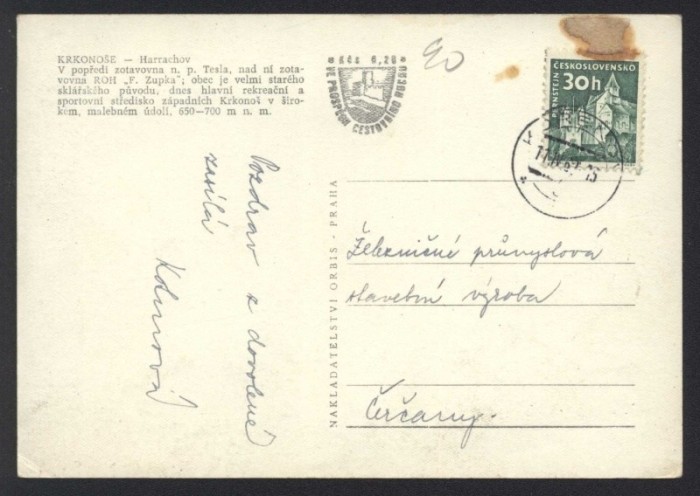 KRKONOŠE — Harrachov
V popředí zotavovna n. p. Tesla, nad ní zota-
vovna ROH „F. Zupka"; obec je velmi starého
sklářského původu, dnes hlavní rekreační a
sportovní středisko západních Krkonoš v širo-
kém, malebném údolí, 650—700 m n. m.
Kčs 0,20
VE PROSPĚCH CESTOVNÍHO RUCHU
90
ČESKOSLOVENSKO
30h
PERNŠTEJN
NAKLADATELSTVÍ ORBIS - PRAHA
Pozdrav z dovolené
zasílá
Železničné průmyslová
stavební výroba
Čerčany.